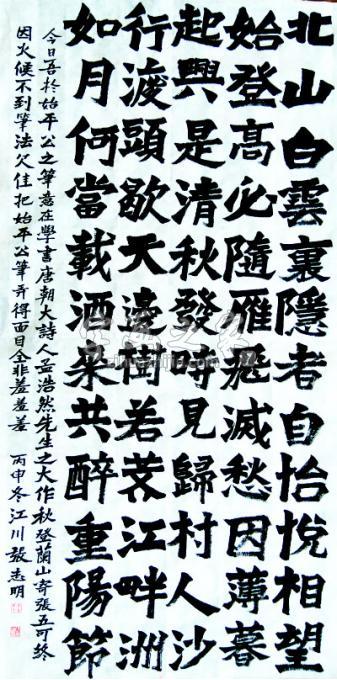 北山白雲裏隱者自怡悅相望
始登高必隨雁飛滅愁因薄暮
起興是清秋發時見歸村人沙
行渡頭歇天邊樹若荠江畔洲
如月何當載酒來共醉重陽節
今日吾於始平公之筆意在學書唐朝大詩人孟浩然先生之大作秋登蘭山寄張五可終
因火候不到筆法欠佳把始平公筆弄得面目全非羞羞羞 丙申冬江川張志明